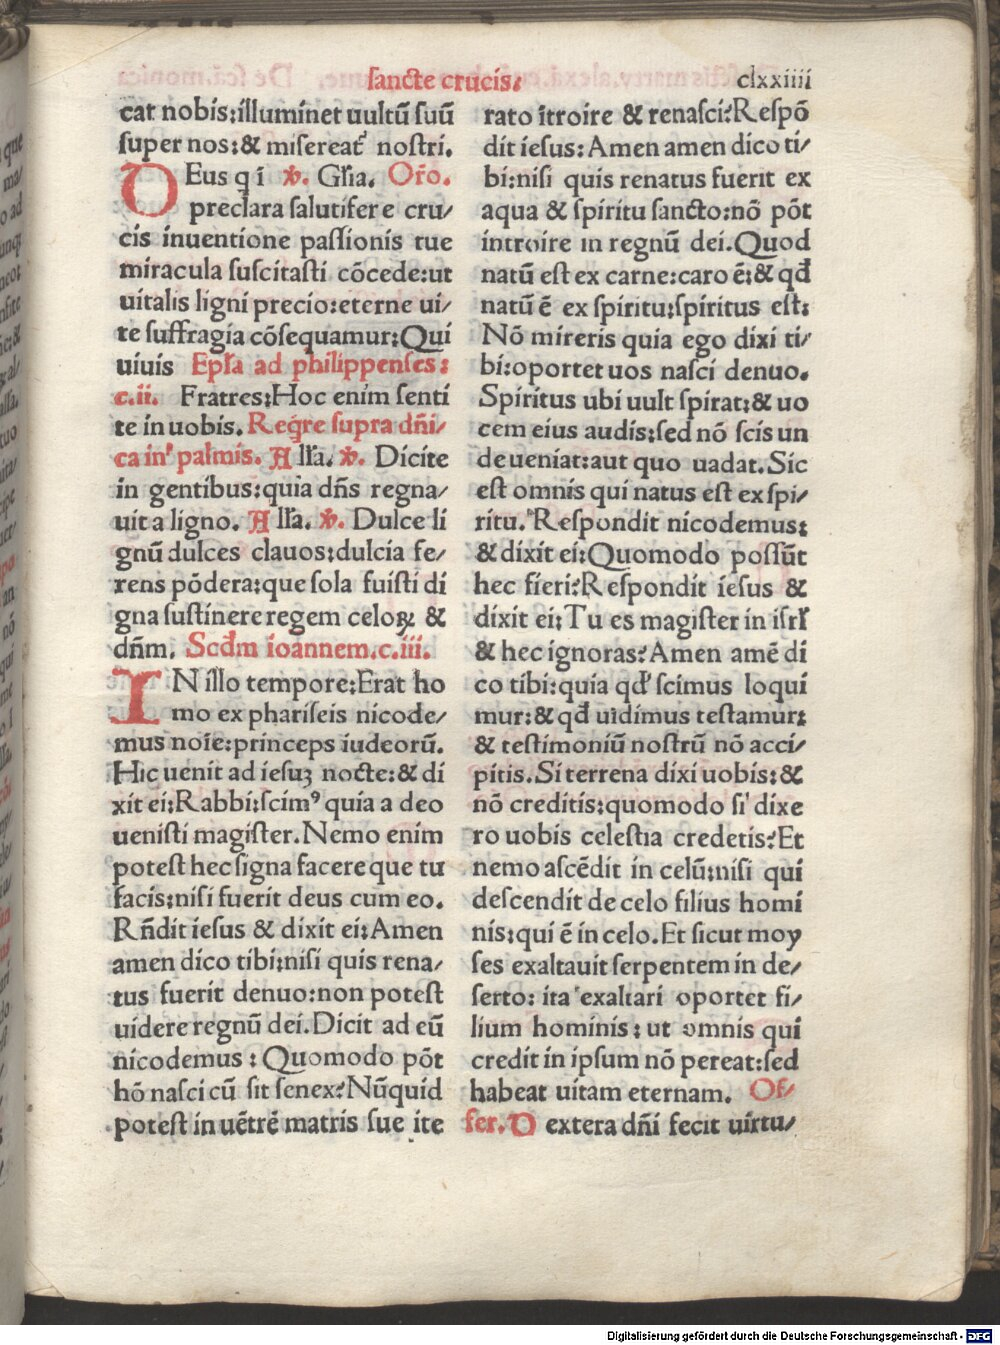 sancte crucis:
clxxiiii
cat nobis:illuminet uultū suū
super nos:& misereat᷑ nostri.
DEus q i ꝟ. Gľia. Oro̅.
preclara salutifere cru/
cis inuentione passionis tue
miracula suscitasti cōcede:ut
uitalis ligni precio:eterne ui/
te suffragia cōsequamur:Qui
uiuis Epľa ad philippenses:
c.ii. Fratres:Hoc enim senti
te in uobis. Reqͥre supra dñi/
ca in' palmis. Alľa. ꝟ. Dicite
in gentibus:quia dñs regna/
uit a ligno. Alľa. ꝟ. Dulce li
gnū dulces clauos:dulcia fe/
rens pōdera:que sola fuisti di
gna sustinere regem celoꝝ &
dñm. Scđm ioannem.c.iii.
IN illo tempore:Erat ho
mo ex phariseis nicode/
mus noīe:princeps iudeorū.
Hic uenit ad iesuꝫ nocte:& di
xit ei:Rabbi:scimꝰ quia a deo
uenisti magister.Nemo enim
potest hec signa facere que tu
facis:nisi fuerit deus cum eo.
Rñdit iesus & dixit ei:Amen
amen dico tibi:nisi quis rena/
tus fuerit denuo:non potest
uidere regnū dei.Dicit ad eū
nicodemus : Quomodo pōt
hō nasci cū sit senex?Nūquid
potest in uētrē matris sue ite
rato ītroire & renasci?Respō
dit iesus: Amen amen dico ti/
bi:nisi quis renatus fuerit ex
aqua & spiritu sancto:nō pōt
introire in regnū dei.Quod
natū est ex carne:caro ē:& qđ
natū ē ex spiritu:spiritus est:
Nō mireris quia ego dixi ti/
bi:oportet uos nasci denuo.
Spiritus ubi uult spirat:& uo
cem eius audis:sed nō scis un
de ueniat:aut quo uadat.Sic
est omnis qui natus est ex spi/
ritu.Respondit nicodemus:
& dixit ei:Quomodo possūt
hec fieri?Respondit iesus &
dixit ei:Tu es magister in isrľ
& hec ignoras?Amen amē di
co tibi:quia qđ scimus loqui
mur:& qđ uidimus testamur:
& testimoniū nostrū nō acci/
pitis.Si terrena dixi uobis:&
nō creditis:quomodo si dixe
ro uobis celestia credetis?Et
nemo ascēdit in celū:nisi qui
descendit de celo filius homi
nis:qui ē in celo.Et sicut moy
ses exaltauit serpentem in de/
serto: ita exaltari oportet fi/
lium hominis:ut omnis qui
credit in ipsum nō pereat:sed
habeat uitam eternam. Of/
fer. Dextera dñi fecit uirtu/
Digitalisierung gefördert durch die Deutsche Forschungsgemeinschaft - DFG